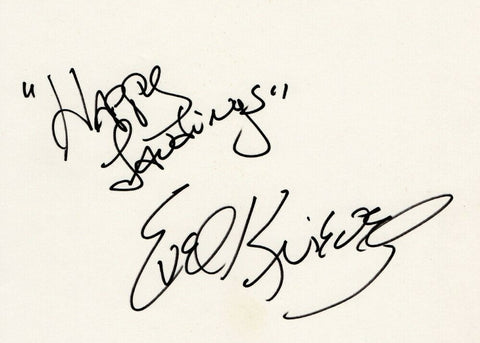 "Happy
Landings"
Evel Knievel